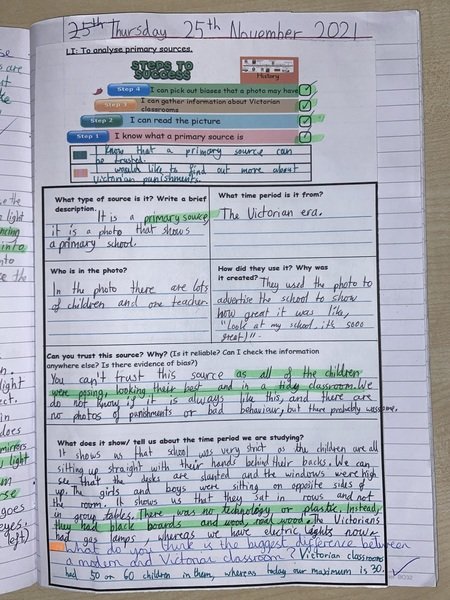 25th Thursday 25th November 2021
LI: To analyse primary sources.
STEPS TO
SUCCESS
History
Step 4 I can pick out biases that a photo may have
Step 3 I can gather information about Victorian
classrooms
Step 2 I can read the picture
Step 1 I know what a primary source is
I know that a primary source can
be trusted.
I would like to find out more about
Victorian punishments.
What type of source is it? Write a brief
description.
It is a primary source
it is a photo that shows
a primary school.
What time period is it from?
The Victorian era.
Who is in the photo?
In the photo there are lots
of children and one teacher
How did they use it? Why was
it created?
They used the photo to
advertise the school to show
how great it was like,
"Look at my school its sooo
great!".
Can you trust this source? Why? (Is it reliable? Can I check the information
anywhere else? Is there evidence of bias?)
You can't trust this source as all of the children
were posing, looking their best and in a tidy classroom. We
do not know if it is always like this, and there are
no photos of punishments or bad behaviour, but there probably was
What does it show/ tell us about the time period we are studying?
It shows us that school was very strict as the children are all
sitting up straight with their hands behind their backs. We can
see that the desks are slanted and the windows were high
up. The girls and boys were sitting on opposite sides of
the room. It shows us that they sat in rows and not
in group tables. There was no technology or plastic. Instead,
they had black boards and wood, real wood. The Victorians
had gas lamps, whereas we have electric lights now.
What do you think is the biggest difference between
a modern and Victorian classroom? Victorian classrooms
had 50 or 60 children in them, whereas today our maximum is 30.